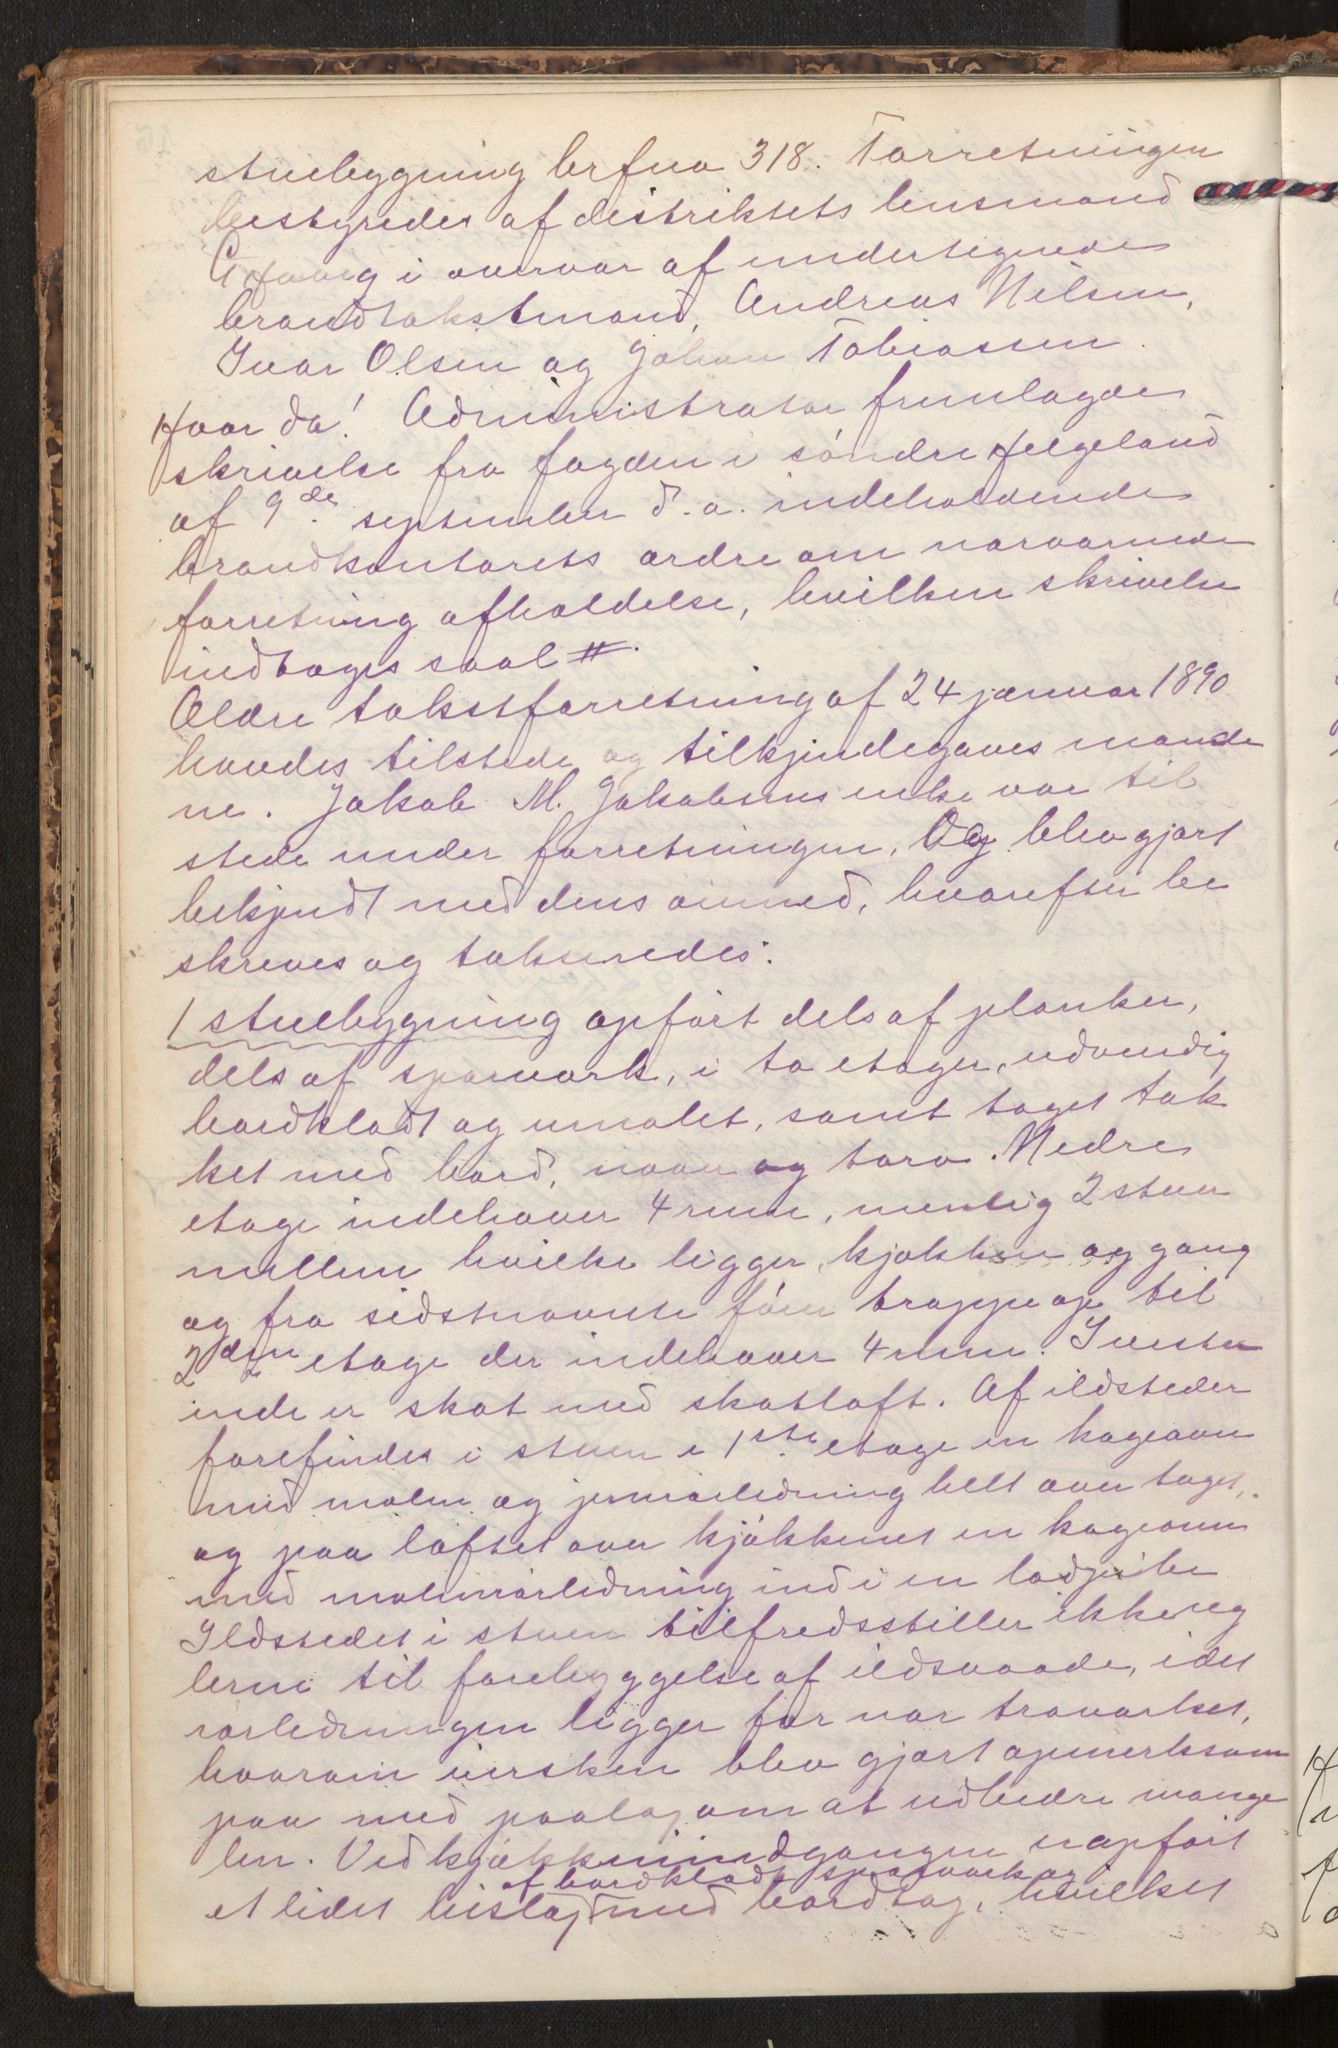 stuebygning brfno 318. Forretningen
bestyredes af distriktets lensmand
i overvær af undertegnede
brandtakstmænd, Andreas Nilsen,
Ivar Olsen og Johan Tobiassen.
Hvor da! Administrator fremlagde
skrivelse fra fogden i søndre Helgeland
af 9de september d.a. indeholdende
brandkontorets ordre om nærværende
forretning afholdelse, hvilken skrivelse
indtages saal #.
Ældre takstforretning af 24 januar 1890
havdes tilstede og tilkjendegaves mænde
ne. Jakob M. Jakobsens enke var til
stede under forretningen. Og blev gjort
bekjendt med dens øiemed, hvorefter be
skreves og takseredes:
1 stuebygning opført dels af planker,
dels af spærverk, i to etager, udvendig
bordklædt og umalet, samt taget tæk
ket med bord, næver og torv. Nedre
etage indehaver 4 rum, nemlig 2 stuer
mellem hvilke ligger kjøkken og gang
og fra sidstnævnte fører trappe op til
2den etage der indehaver 4 rum.
inde er skot med skotloft. Af ildsteder
forefindes i stuen i 1ste etage en kogeovn
med molm og jernrørledning helt over taget,
og paa loftet over kjøkkenet en kogeovn
med molmrørledning ind i en lodpibe
Ildstedet i stuen tilfredsstiller ikke reg
lerne til forebyggelse af ildsvaade, idet
rørledningen ligger for nær træverket,
hvorom eiersken blev gjort opmerksom
paa med paalæg om at udbedre mange
len. Ved kjøkkenindgangen er opført
af bordklædt spærverk og
et lidet bislag med bordtag, hvilket